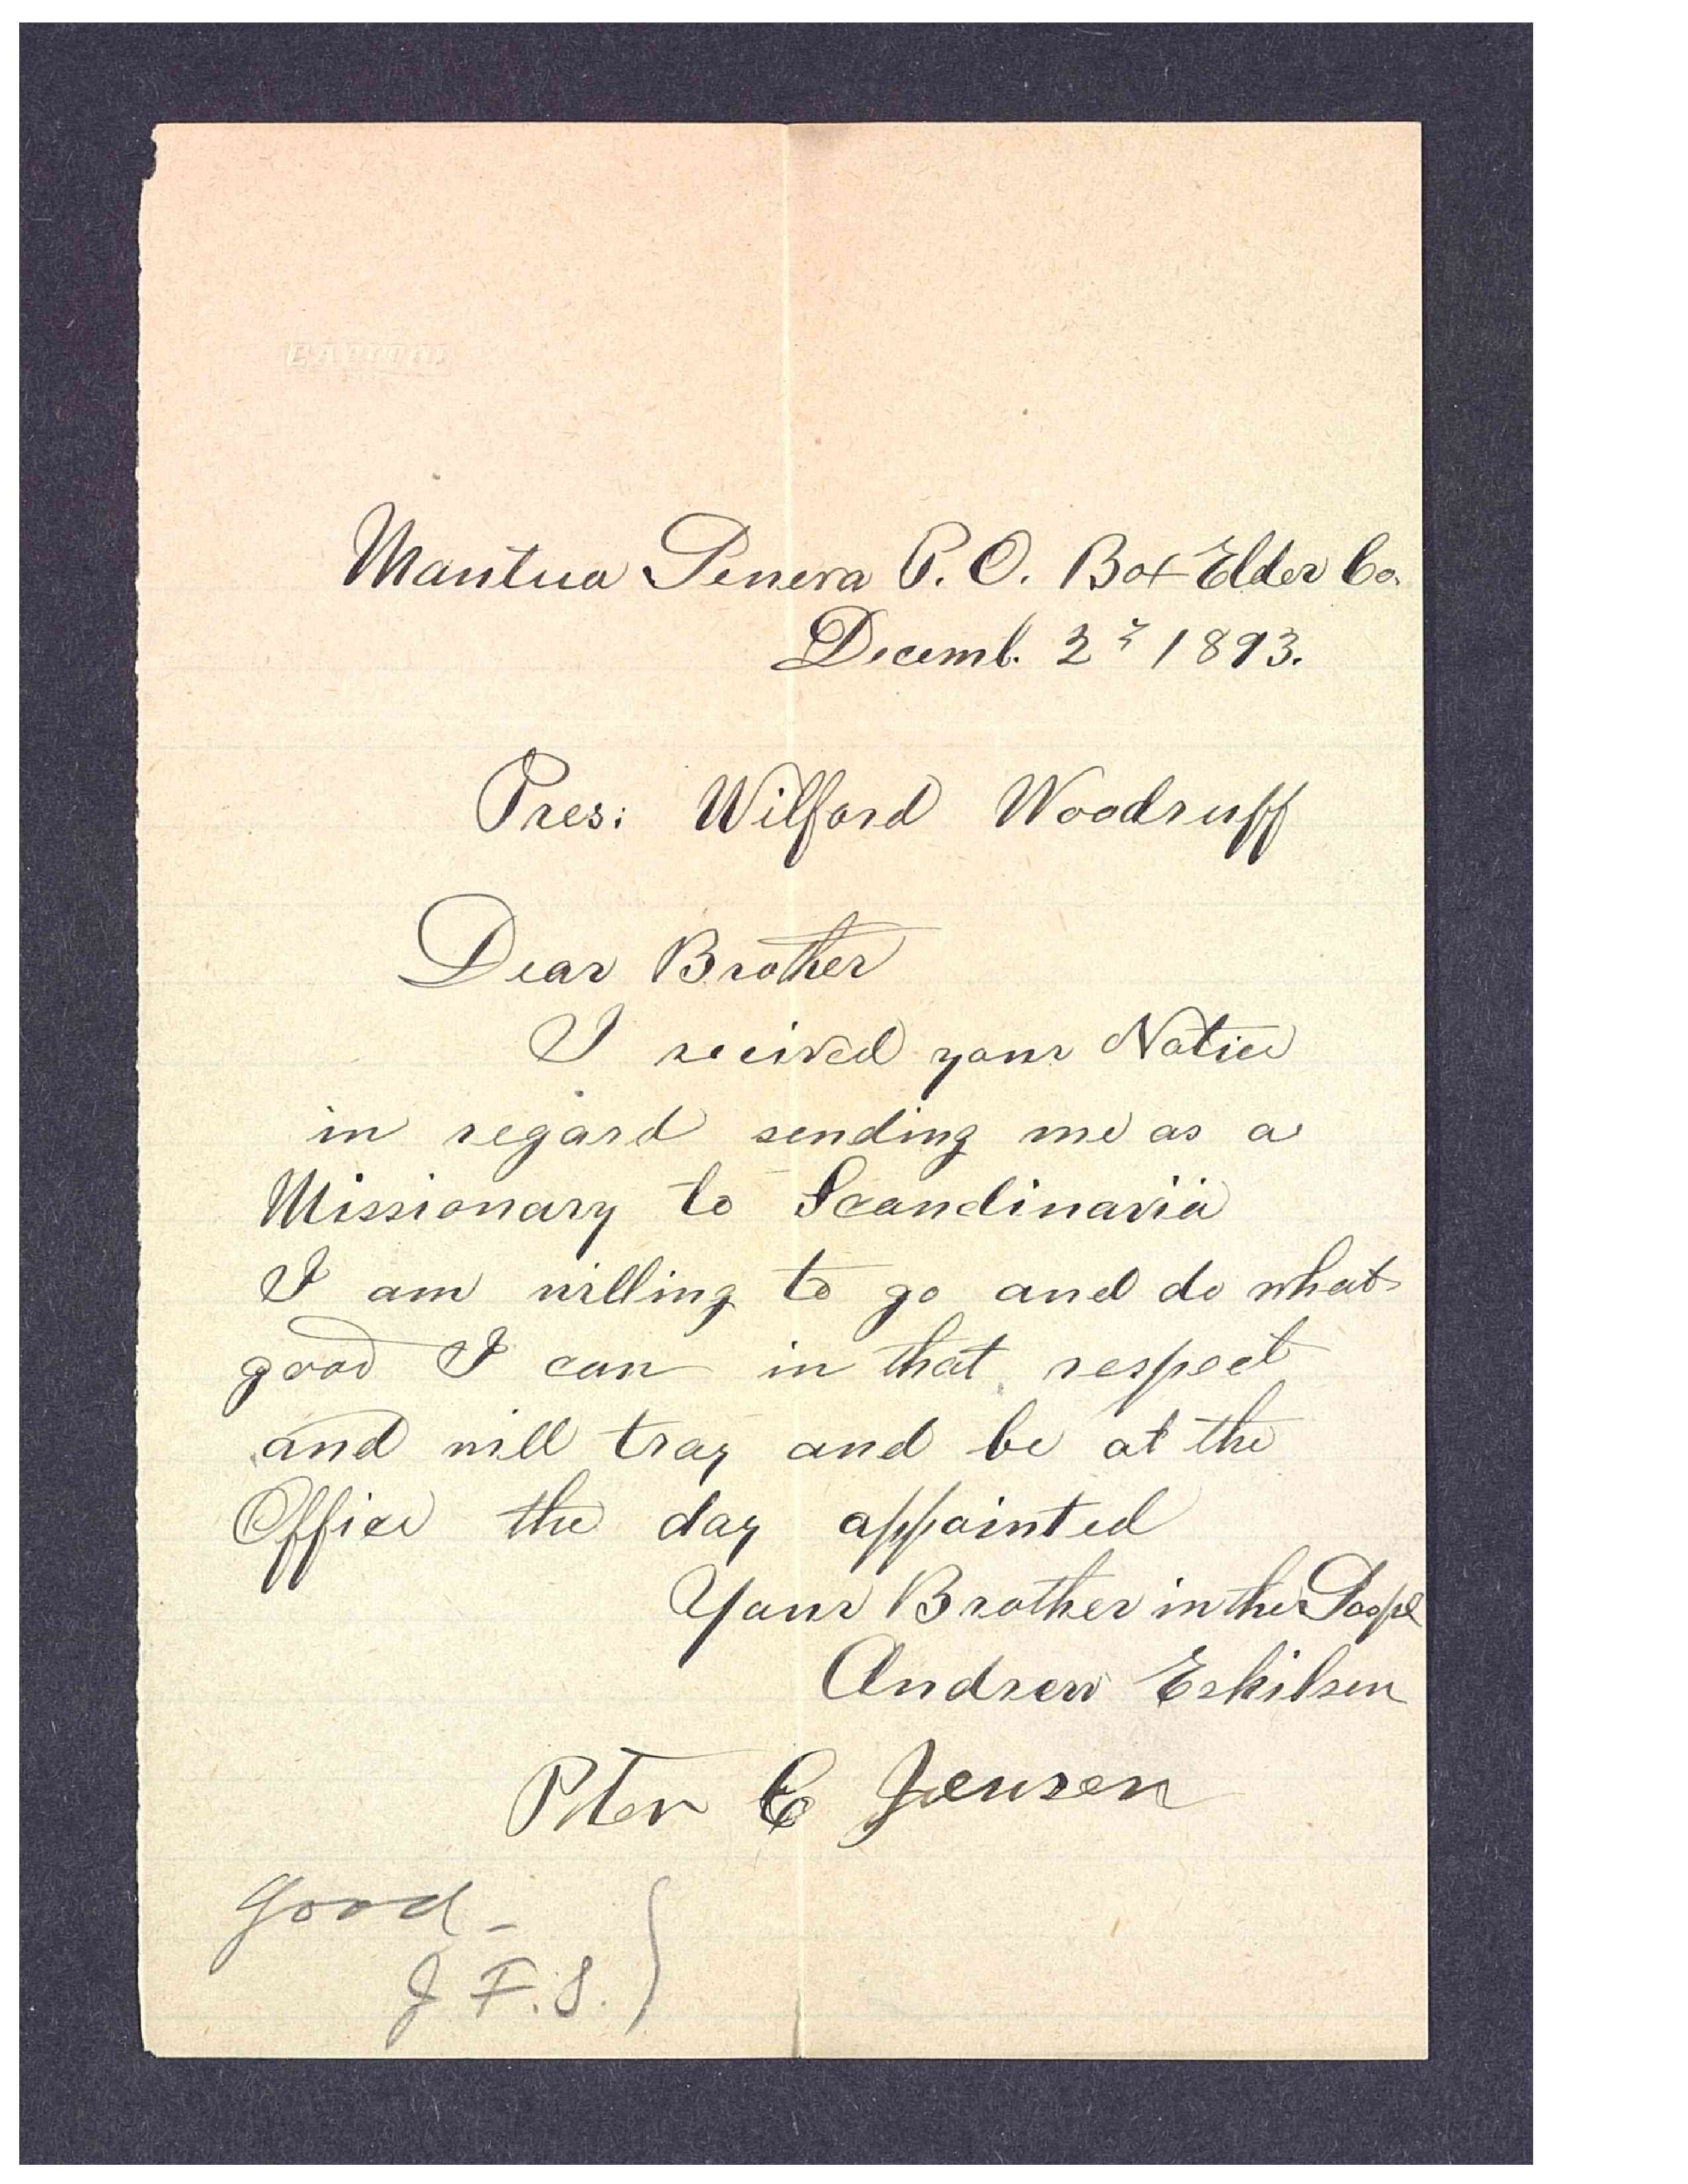 CAPITOL
Mantua Geneva P.O. Box Elder Co.
Decemb. 2? 1893.
Pres: Wilford Woodruff
Dear Brother
I recived your Notice
in regard sending me as a
Missionary to Scandinavia
I am willing to go and do what
good I can in that respect
and will tray and be at the
Office the day appointed
Your Brother in the Gospel
Andrew Eskilsen
Peter C Jensen
Good -
J F. S. }